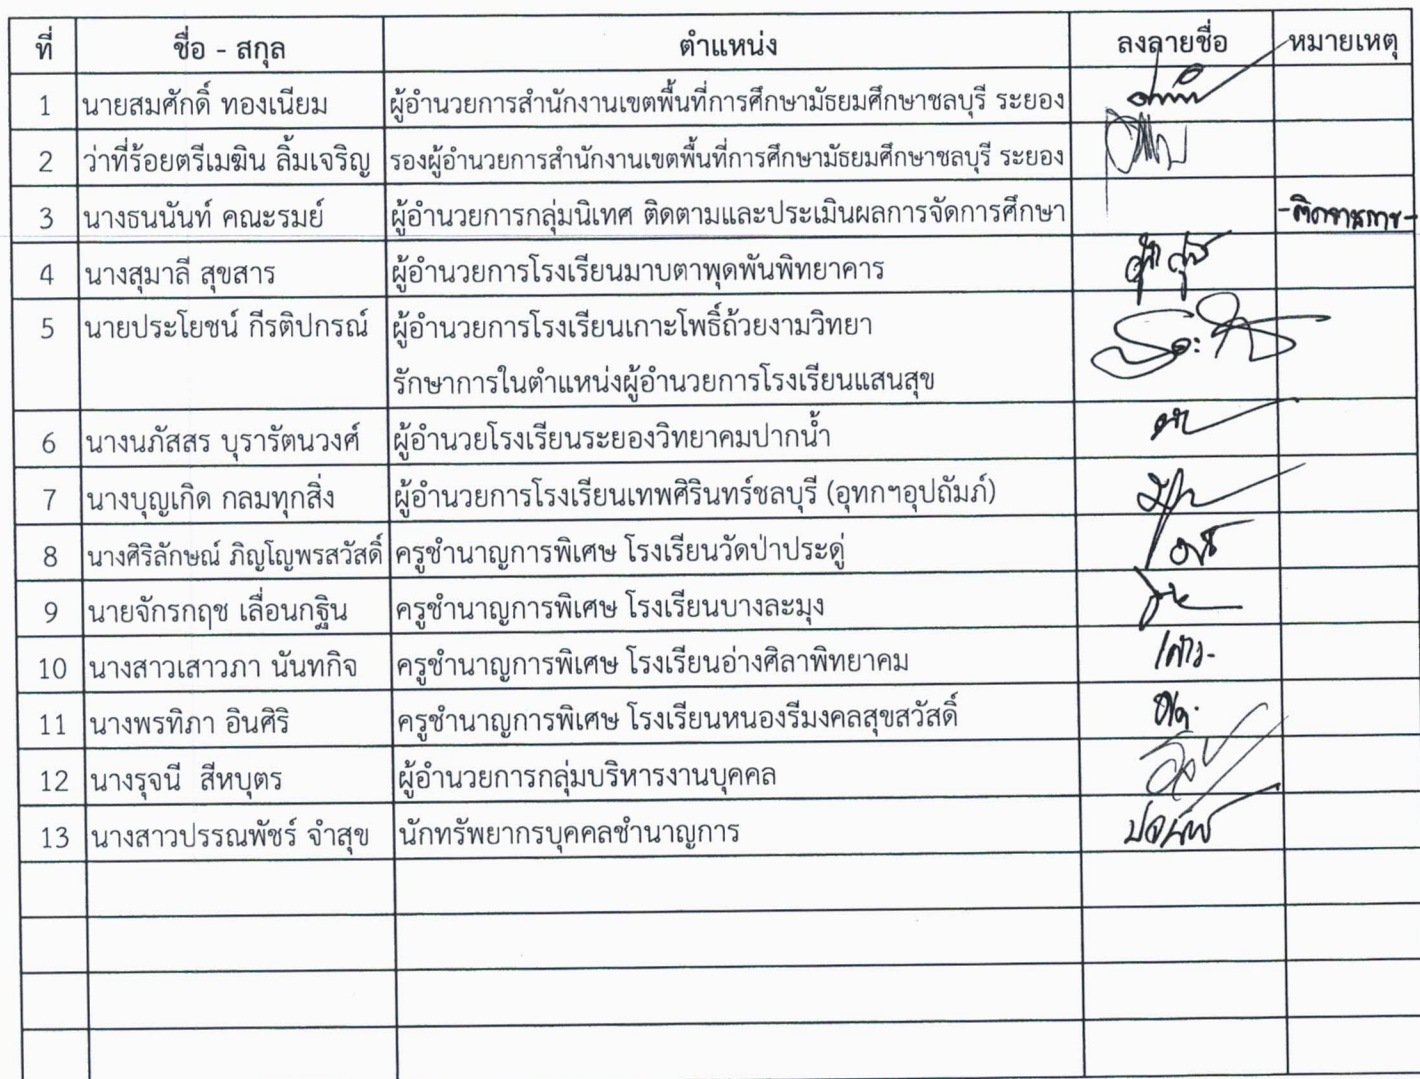 ที่ ชื่อ - สกุล ตำแหน่ง ลงลายชื่อ หมายเหตุ
1 นายสมศักดิ์ ทองเนียม ผู้อำนวยการสำนักงานเขตพื้นที่การศึกษามัธยมศึกษาชลบุรี ระยอง
2 ว่าที่ร้อยตรีเมฆิน ลิ้มเจริญ รองผู้อำนวยการสำนักงานเขตพื้นที่การศึกษามัธยมศึกษาชลบุรี ระยอง
3 นางธนนันท์ คณะรมย์ ผู้อำนวยการกลุ่มนิเทศ ติดตามและประเมินผลการจัดการศึกษา -ติดราชการ-
4 นางสุมาลี สุขสาร ผู้อำนวยการโรงเรียนมาบตาพุดพันพิทยาคาร
5 นายประโยชน์ กีรติปกรณ์ ผู้อำนวยการโรงเรียนเกาะโพธิ์ถ้วยงามวิทยา
รักษาการในตำแหน่งผู้อำนวยการโรงเรียนแสนสุข
6 นางนภัสสร บุรารัตนวงศ์ ผู้อำนวยโรงเรียนระยองวิทยาคมปากน้ำ
7 นางบุญเกิด กลมทุกสิ่ง ผู้อำนวยการโรงเรียนเทพศิรินทร์ชลบุรี (อุทกฯอุปถัมภ์)
8 นางศิริลักษณ์ ภิญโญพรสวัสดิ์ ครูชำนาญการพิเศษ โรงเรียนวัดป่าประดู่
9 นายจักรกฤช เลื่อนกฐิน ครูชำนาญการพิเศษ โรงเรียนบางละมุง
10 นางสาวเสาวภา นันทกิจ ครูชำนาญการพิเศษ โรงเรียนอ่างศิลาพิทยาคม
11 นางพรทิภา อินศิริ ครูชำนาญการพิเศษ โรงเรียนหนองรีมงคลสุขสวัสดิ์
12 นางรุจนี สีหบุตร ผู้อำนวยการกลุ่มบริหารงานบุคคล
13 นางสาวปรรณพัชร์ จำสุข นักทรัพยากรบุคคลชำนาญการ